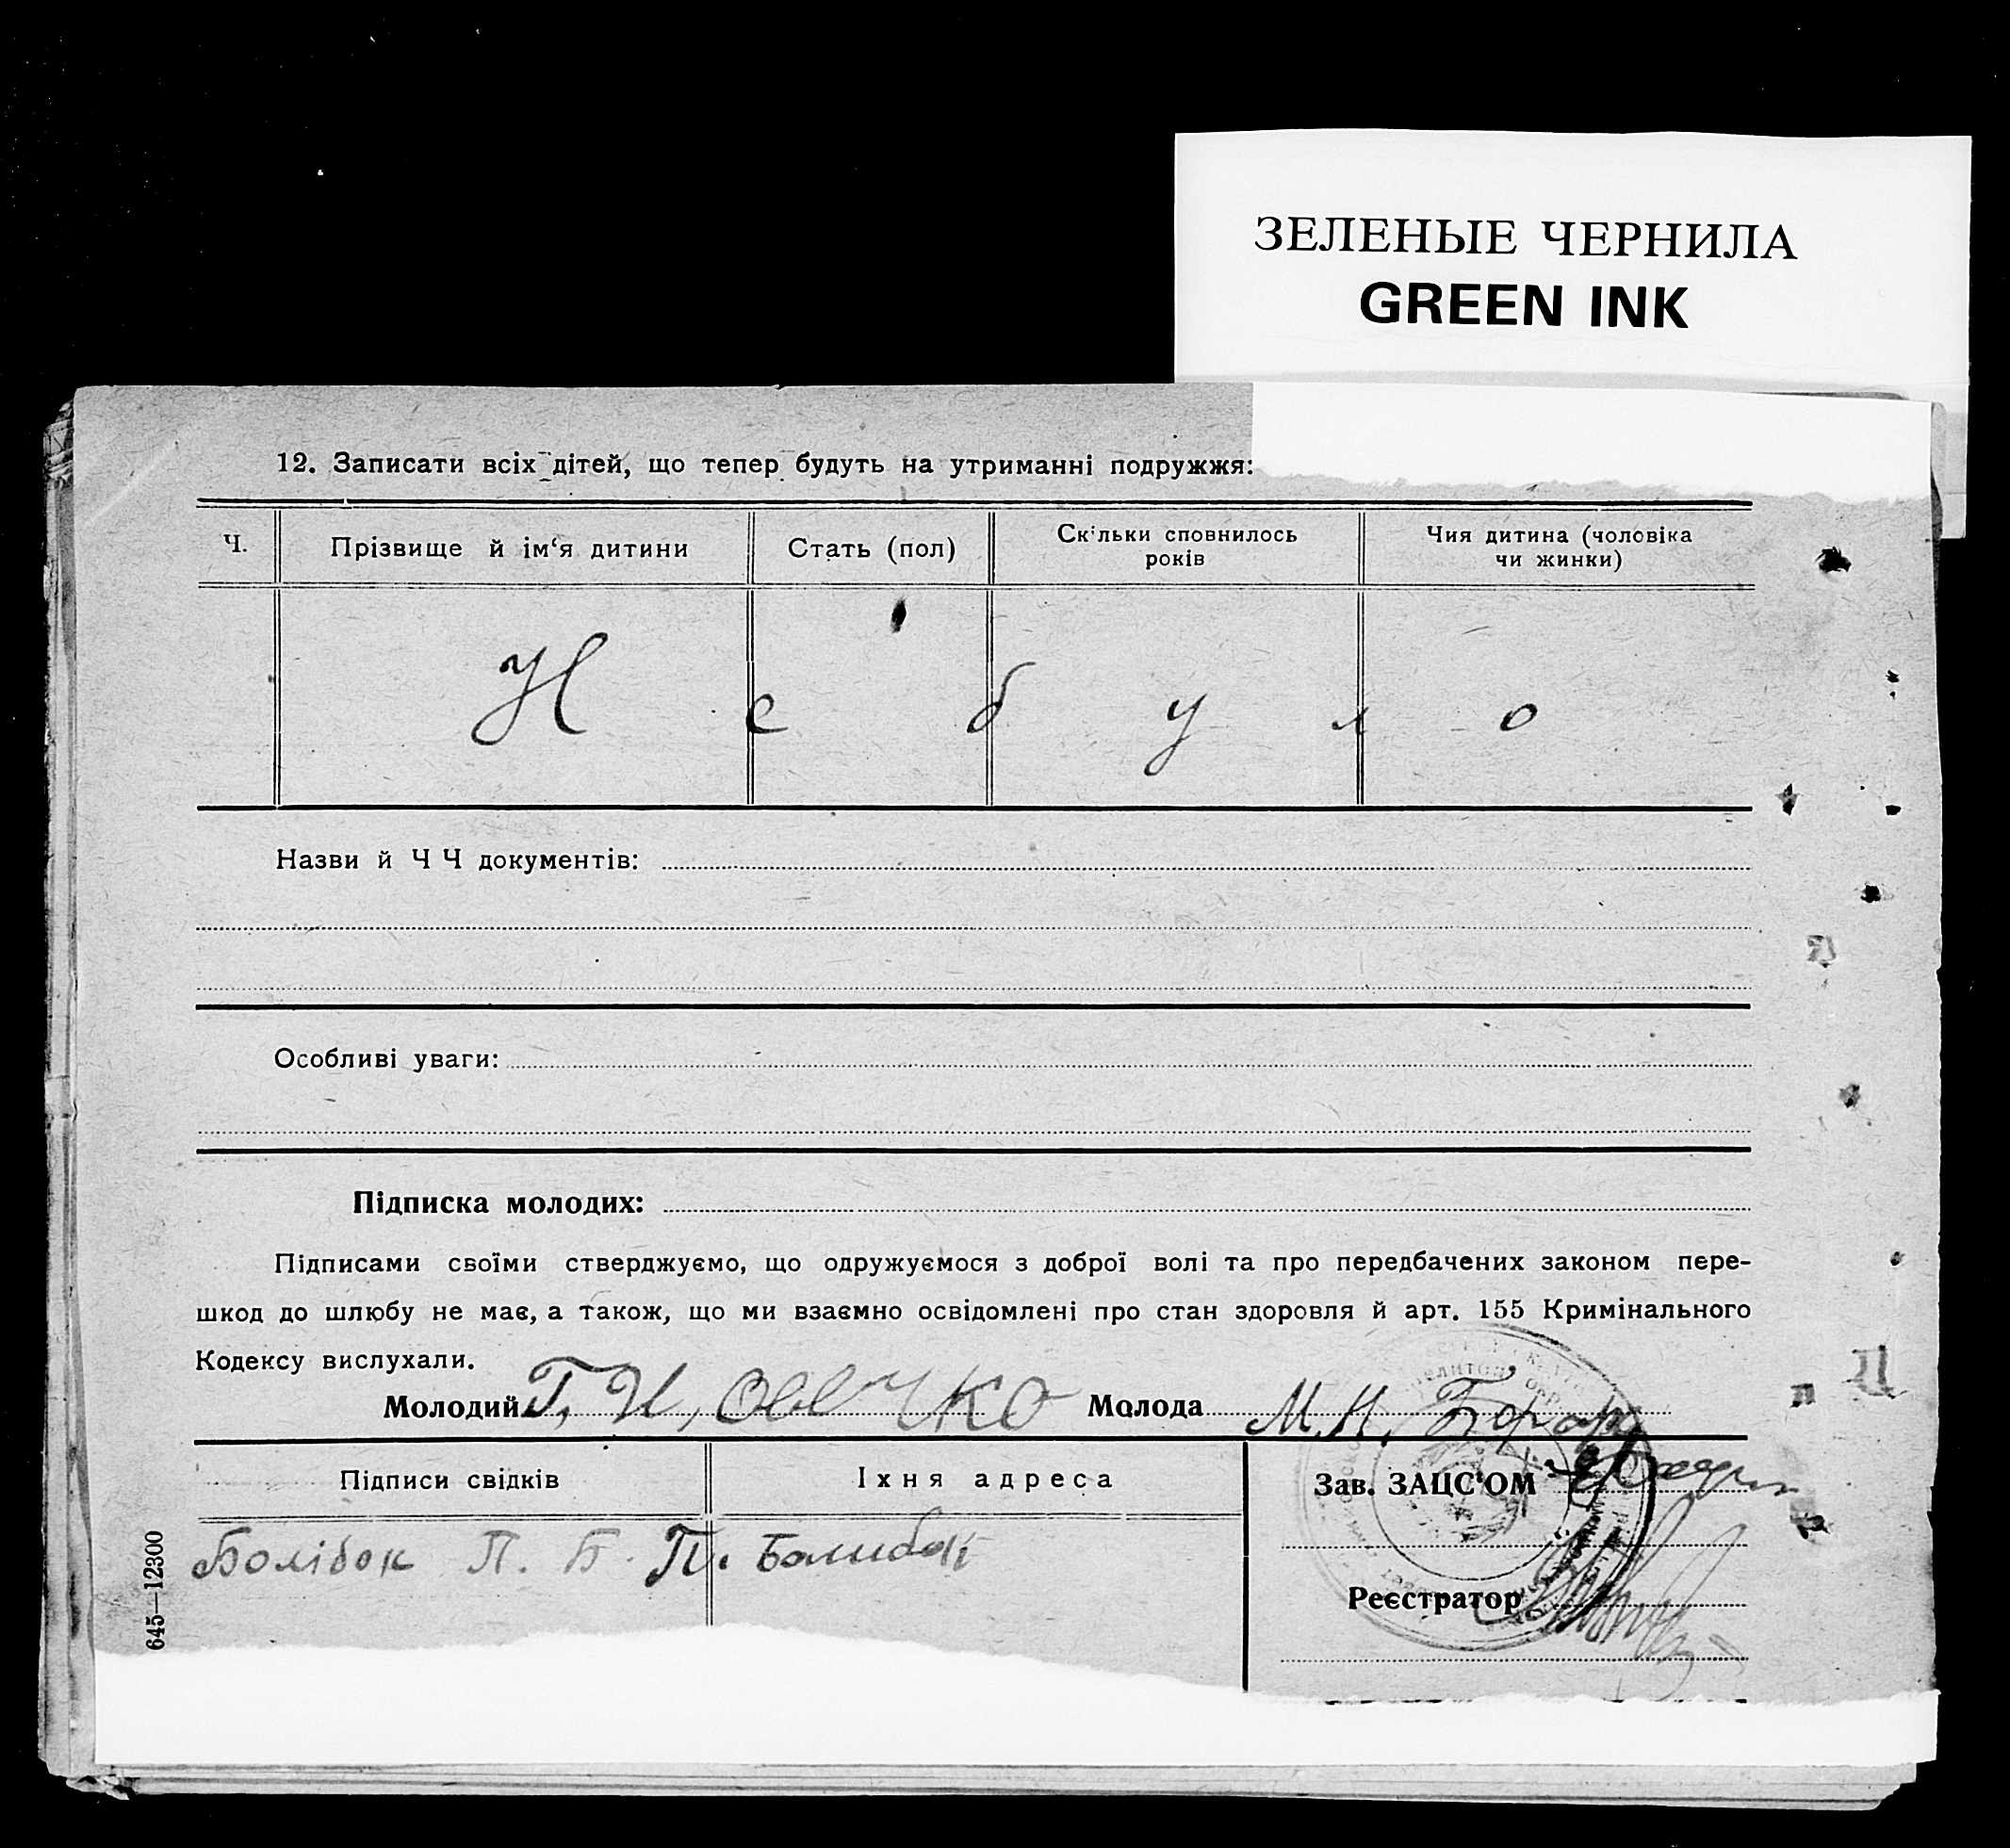 ЗЕЛЕНЫЕ ЧЕРНИЛА
GREEN INK
12. Записати всіх дітей, що тепер будуть на утриманні подружжя:
Ч.
Прізвище й ім‘я дитини
Стать (пол)
Скільки сповнилось
років
Чия дитина (чоловіка
чи жинки)
Не було
Назви й Ч Ч документів:
Особливі уваги:
Підписка молодих:
Підписами своїми стверджуємо, що одружуємося з доброї волі та про передбачених законом пере-
шкод до шлюбу не має, а також, що ми взаємно освідомлені про стан здоровля й арт. 155 Кримінального
Кодексу вислухали.
Молодий Г. И. Молода М. Н.
Підписи свідків
Їхня адреса
Зав. ЗАЦС‘ОМ
Болібок П. Б. П.
Реєстратор
645—12300